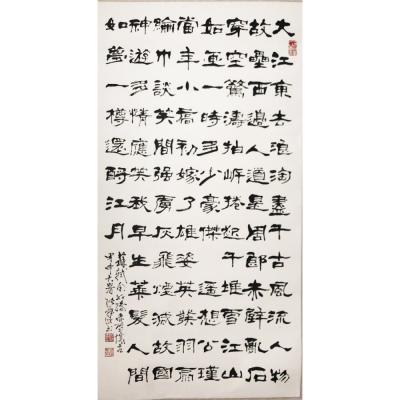 大江東去浪淘盡千古風流人物
故壘西邊人道是周郎赤壁亂石
穿空驚濤拍岸捲起千堆雪江山
如畫一時多少豪傑遙想公瑾
當年小喬初嫁了雄姿英發羽扇
綸巾談笑間强虜灰飛煙滅故國
神遊多情應笑我早生華髮人間
如夢一樽還酹江月
蘇軾念奴嬌赤壁懷古
甲申大暑